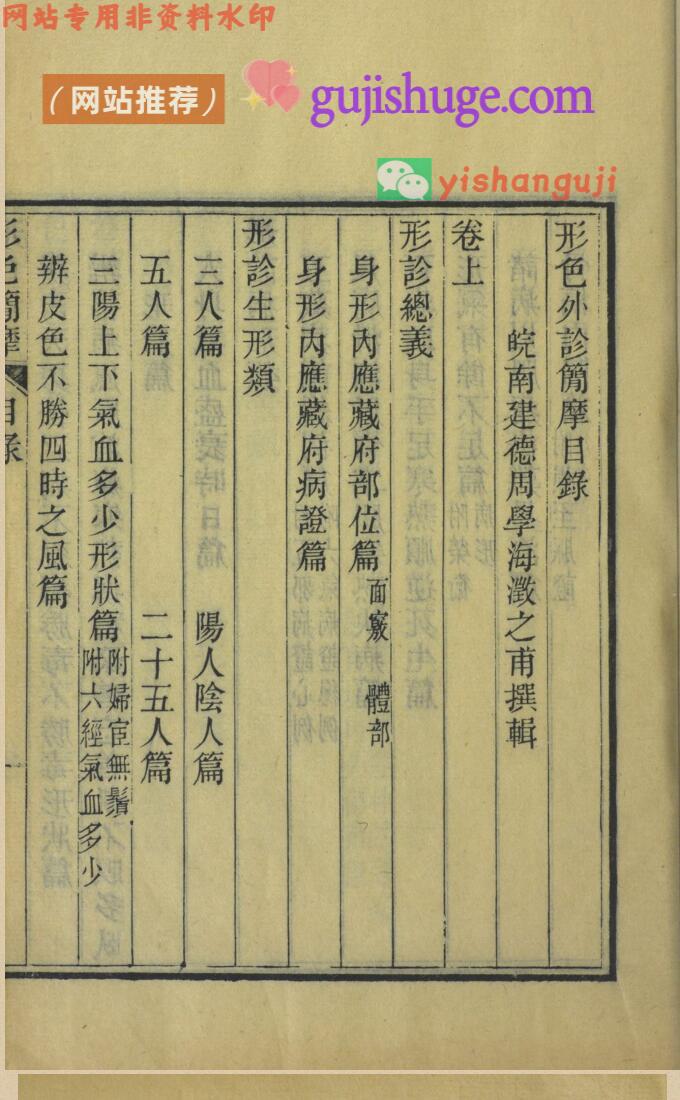 网站专用非资料水印
（网站推荐）
gujishuge.com
yishanguji
形色外診簡摩目錄
皖南建德周學海澂之甫撰輯
卷上
形診總義
身形內應藏府部位篇 面竅 體部
身形內應藏府病證篇
形診生形類
三人篇 陽人陰人篇
五人篇 二十五人篇
三陽上下氣血多少形狀篇 附婦宦無鬚 附六經氣血多少
辨皮色不勝四時之風篇
形色簡摩 目錄 一